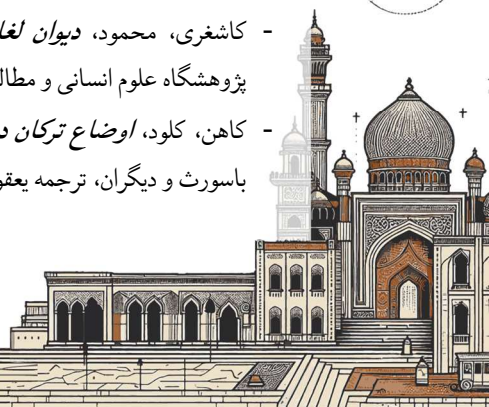 - کاشغری، محمود، دیوان لغا
پژوهشگاه علوم انسانی و مطال
- کاهن، کلود، اوضاع ترکان د
باسورث و دیگران، ترجمه یعقو